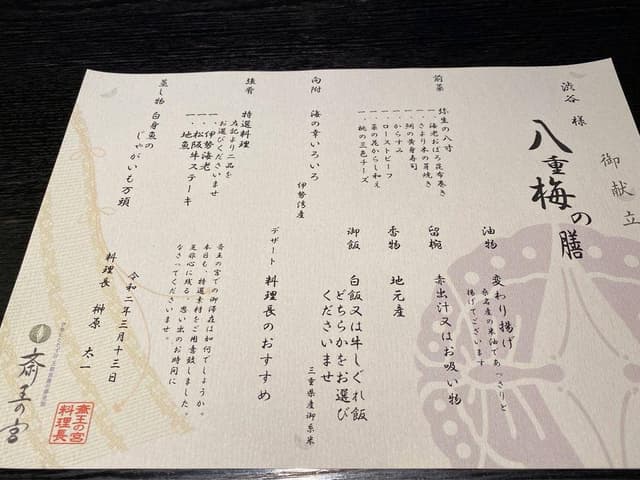 御献立
渋谷 様
八重梅の膳
前菜 弥生の八寸
一、海老おぼろ昆布巻き
一、さより木の芽焼き
一、鯛の黄身寿司
一、からすみ
一、ローストビーフ
一、菜の花からし和え
一、桃の三色チーズ
向附 海の幸いろいろ
伊勢湾産
強肴 特選料理
左記より二品を
お選びくださいませ
一、伊勢海老
一、松阪牛ステーキ
一、地魚
蒸し物 白身魚の
じゃがいも万頭
油物 変わり揚げ
桑名産の米油であっさりと
揚げてございます
留椀 赤出汁又はお吸い物
香物 地元産
御飯 白飯又は牛しぐれ飯
どちらかをお選び
くださいませ
三重県産御糸米
デザート 料理長のおすすめ
斎王の宮での御滞在は如何でしょうか。
本日も、特選素材をご用意致しました。
是非心に残る、思い出のお時間に
なさってくださいませ。
令和二年三月十三日
料理長 榊原 太一
斎王の宮
斎王の宮
料理長